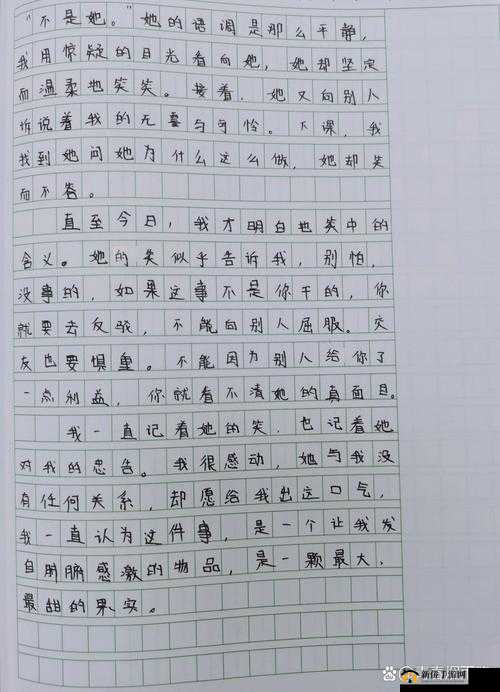 “不是她。”她的语调是那么平静,
我用惊疑的目光看向她,她却坚定
而温柔地笑笑。接着,她又向别人
诉说着我的无辜与可怜。下课,我
找到她问她为什么这么做,她却笑
而不答。
直至今日,我才明白她笑中的
含义。她的笑似乎告诉我,别怕,
没事的,如果这事不是你干的,你
就要去反驳,不能向别人屈服。交
友也要慎重。不能因为别人给你了
一点利益,你就看不清她的真面目。
我一直记着她的笑,也记着她
对我的忠告。我很感动,她与我没
有任何关系,却愿给我出这口气,
我一直认为这件事,是一个让我发
自肺腑感激的物品,是一颗最大,
最甜的果实。
新侠手游网